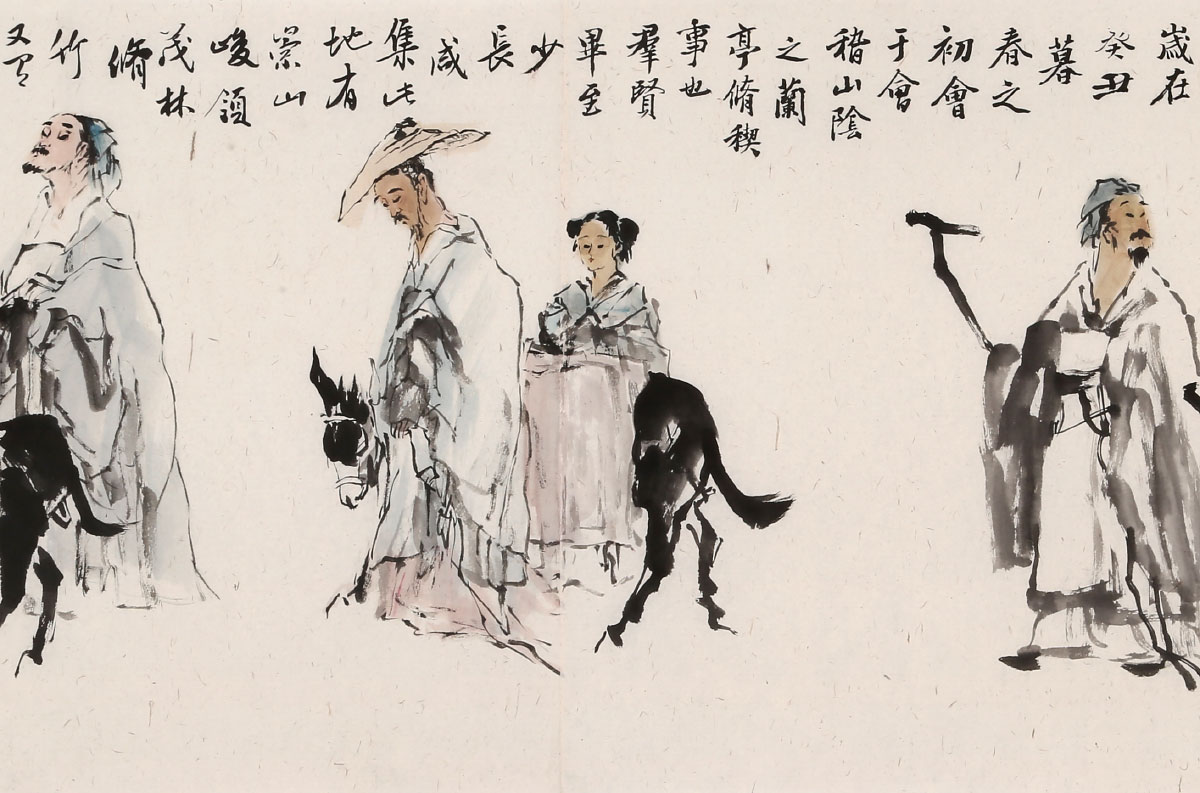 歲在
癸丑
暮
春之
初會
于會
稽山陰
之蘭
亭脩稧
事也
羣賢
畢至
少
長
咸
集此
地有
崇山
峻領
茂林
脩
竹
又有